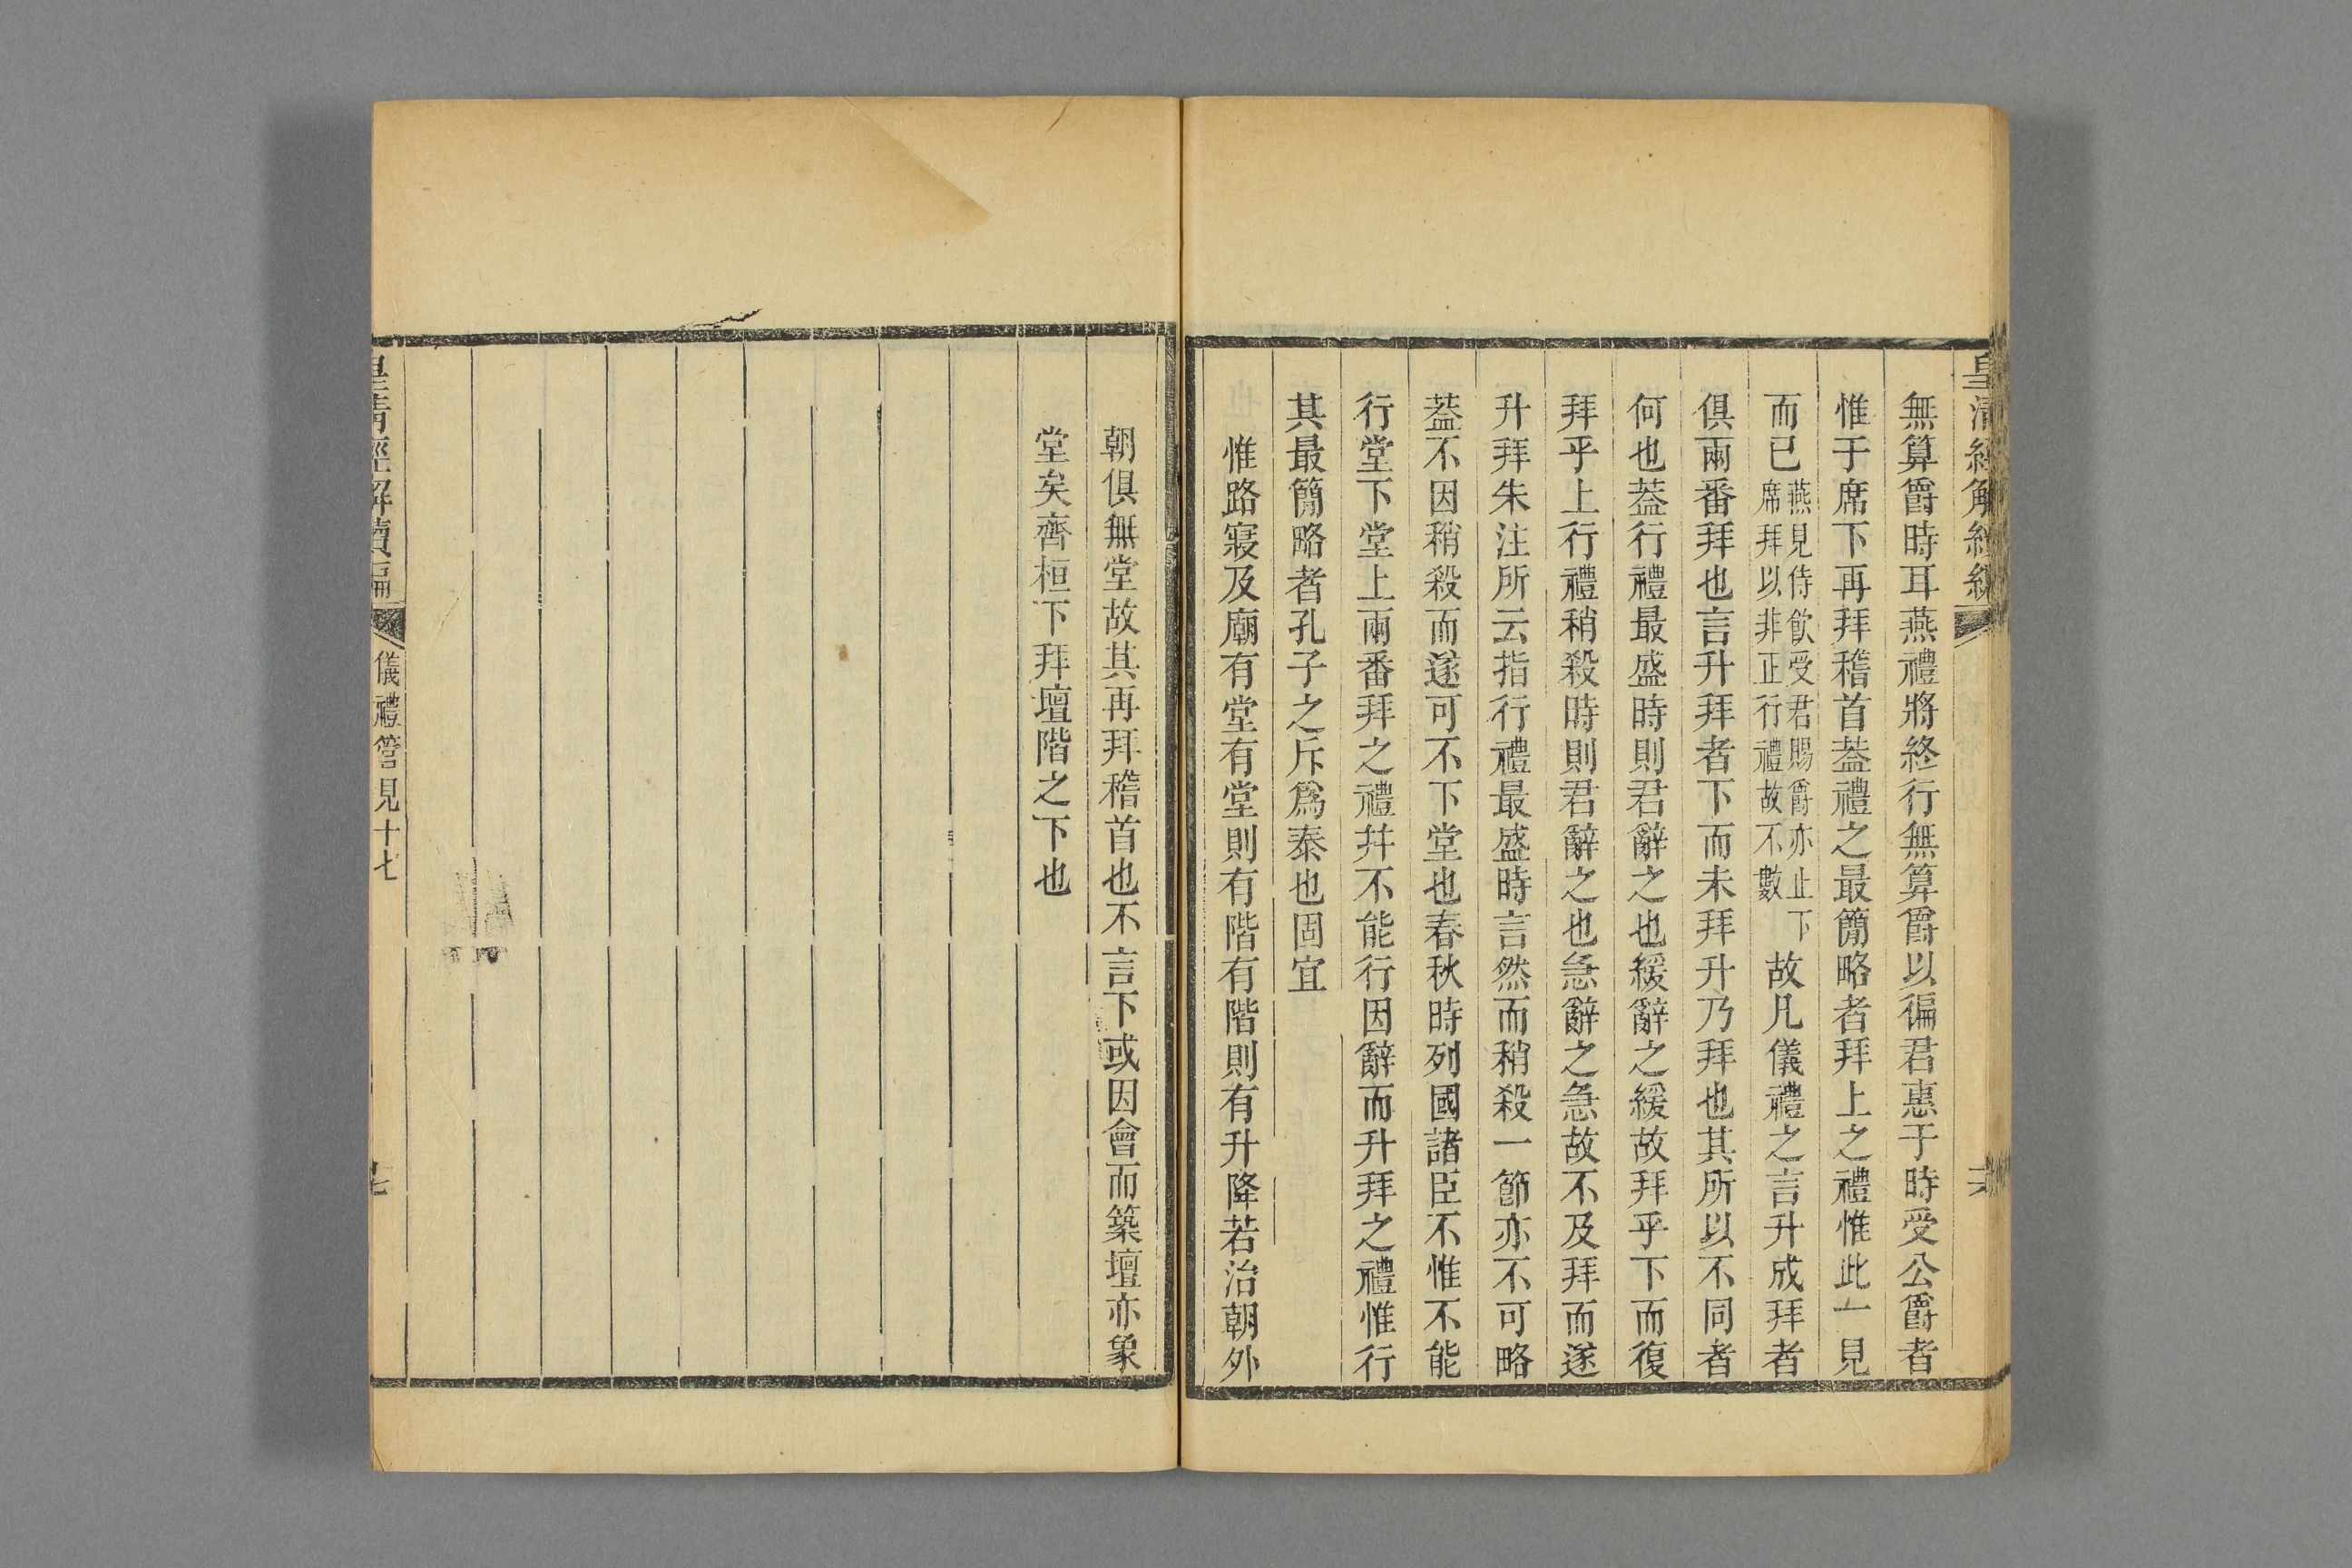 無算爵時耳燕禮將終行無算爵以徧君惠于時受公爵者
惟于席下再拜稽首葢禮之最簡略者拜上之禮惟此一見
而已燕見侍飲受君賜爵亦止下席拜以非正行禮故不數故凡儀禮之言升成拜者
俱兩番拜也言升拜者下而未拜升乃拜也其所以不同者
何也葢行禮最盛時則君辭之也緩辭之緩故拜乎下而復
拜乎上行禮稍殺時則君辭之也急辭之急故不及拜而遂
升拜朱注所云指行禮最盛時言然而稍殺一節亦不可略
葢不因稍殺而遂可不下堂也春秋時列國諸臣不惟不能
行堂下堂上兩番拜之禮并不能行因辭而升拜之禮惟行
其最簡略者孔子之斥爲泰也固宜
惟路寢及廟有堂有堂則有階有階則有升降若治朝外
朝俱無堂故其再拜稽首也不言下或因會而築壇亦象
堂矣齊桓下拜壇階之下也
皇清經解續編
儀禮管見十七